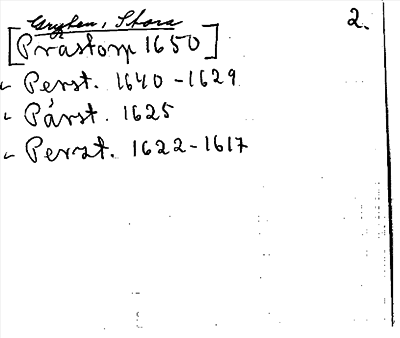 Gryten, Stora 2.
[Prästorp 1650]
Perst. 1640-1629
Pärst. 1625
Perst. 1622-1617